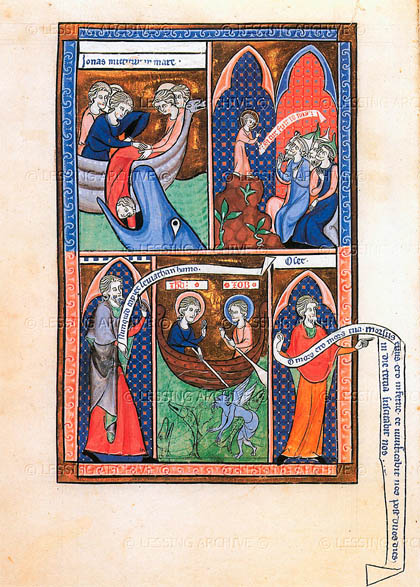 Jonas mittitur in mare.
Numquid leviathan hamo.
IOB
Osee.
O mors ero mors tua. morsus
tuus ero inferne. et vivificabit nos post duos dies.
in die tercia suscitabit nos.
© LESSING ARCHIVE